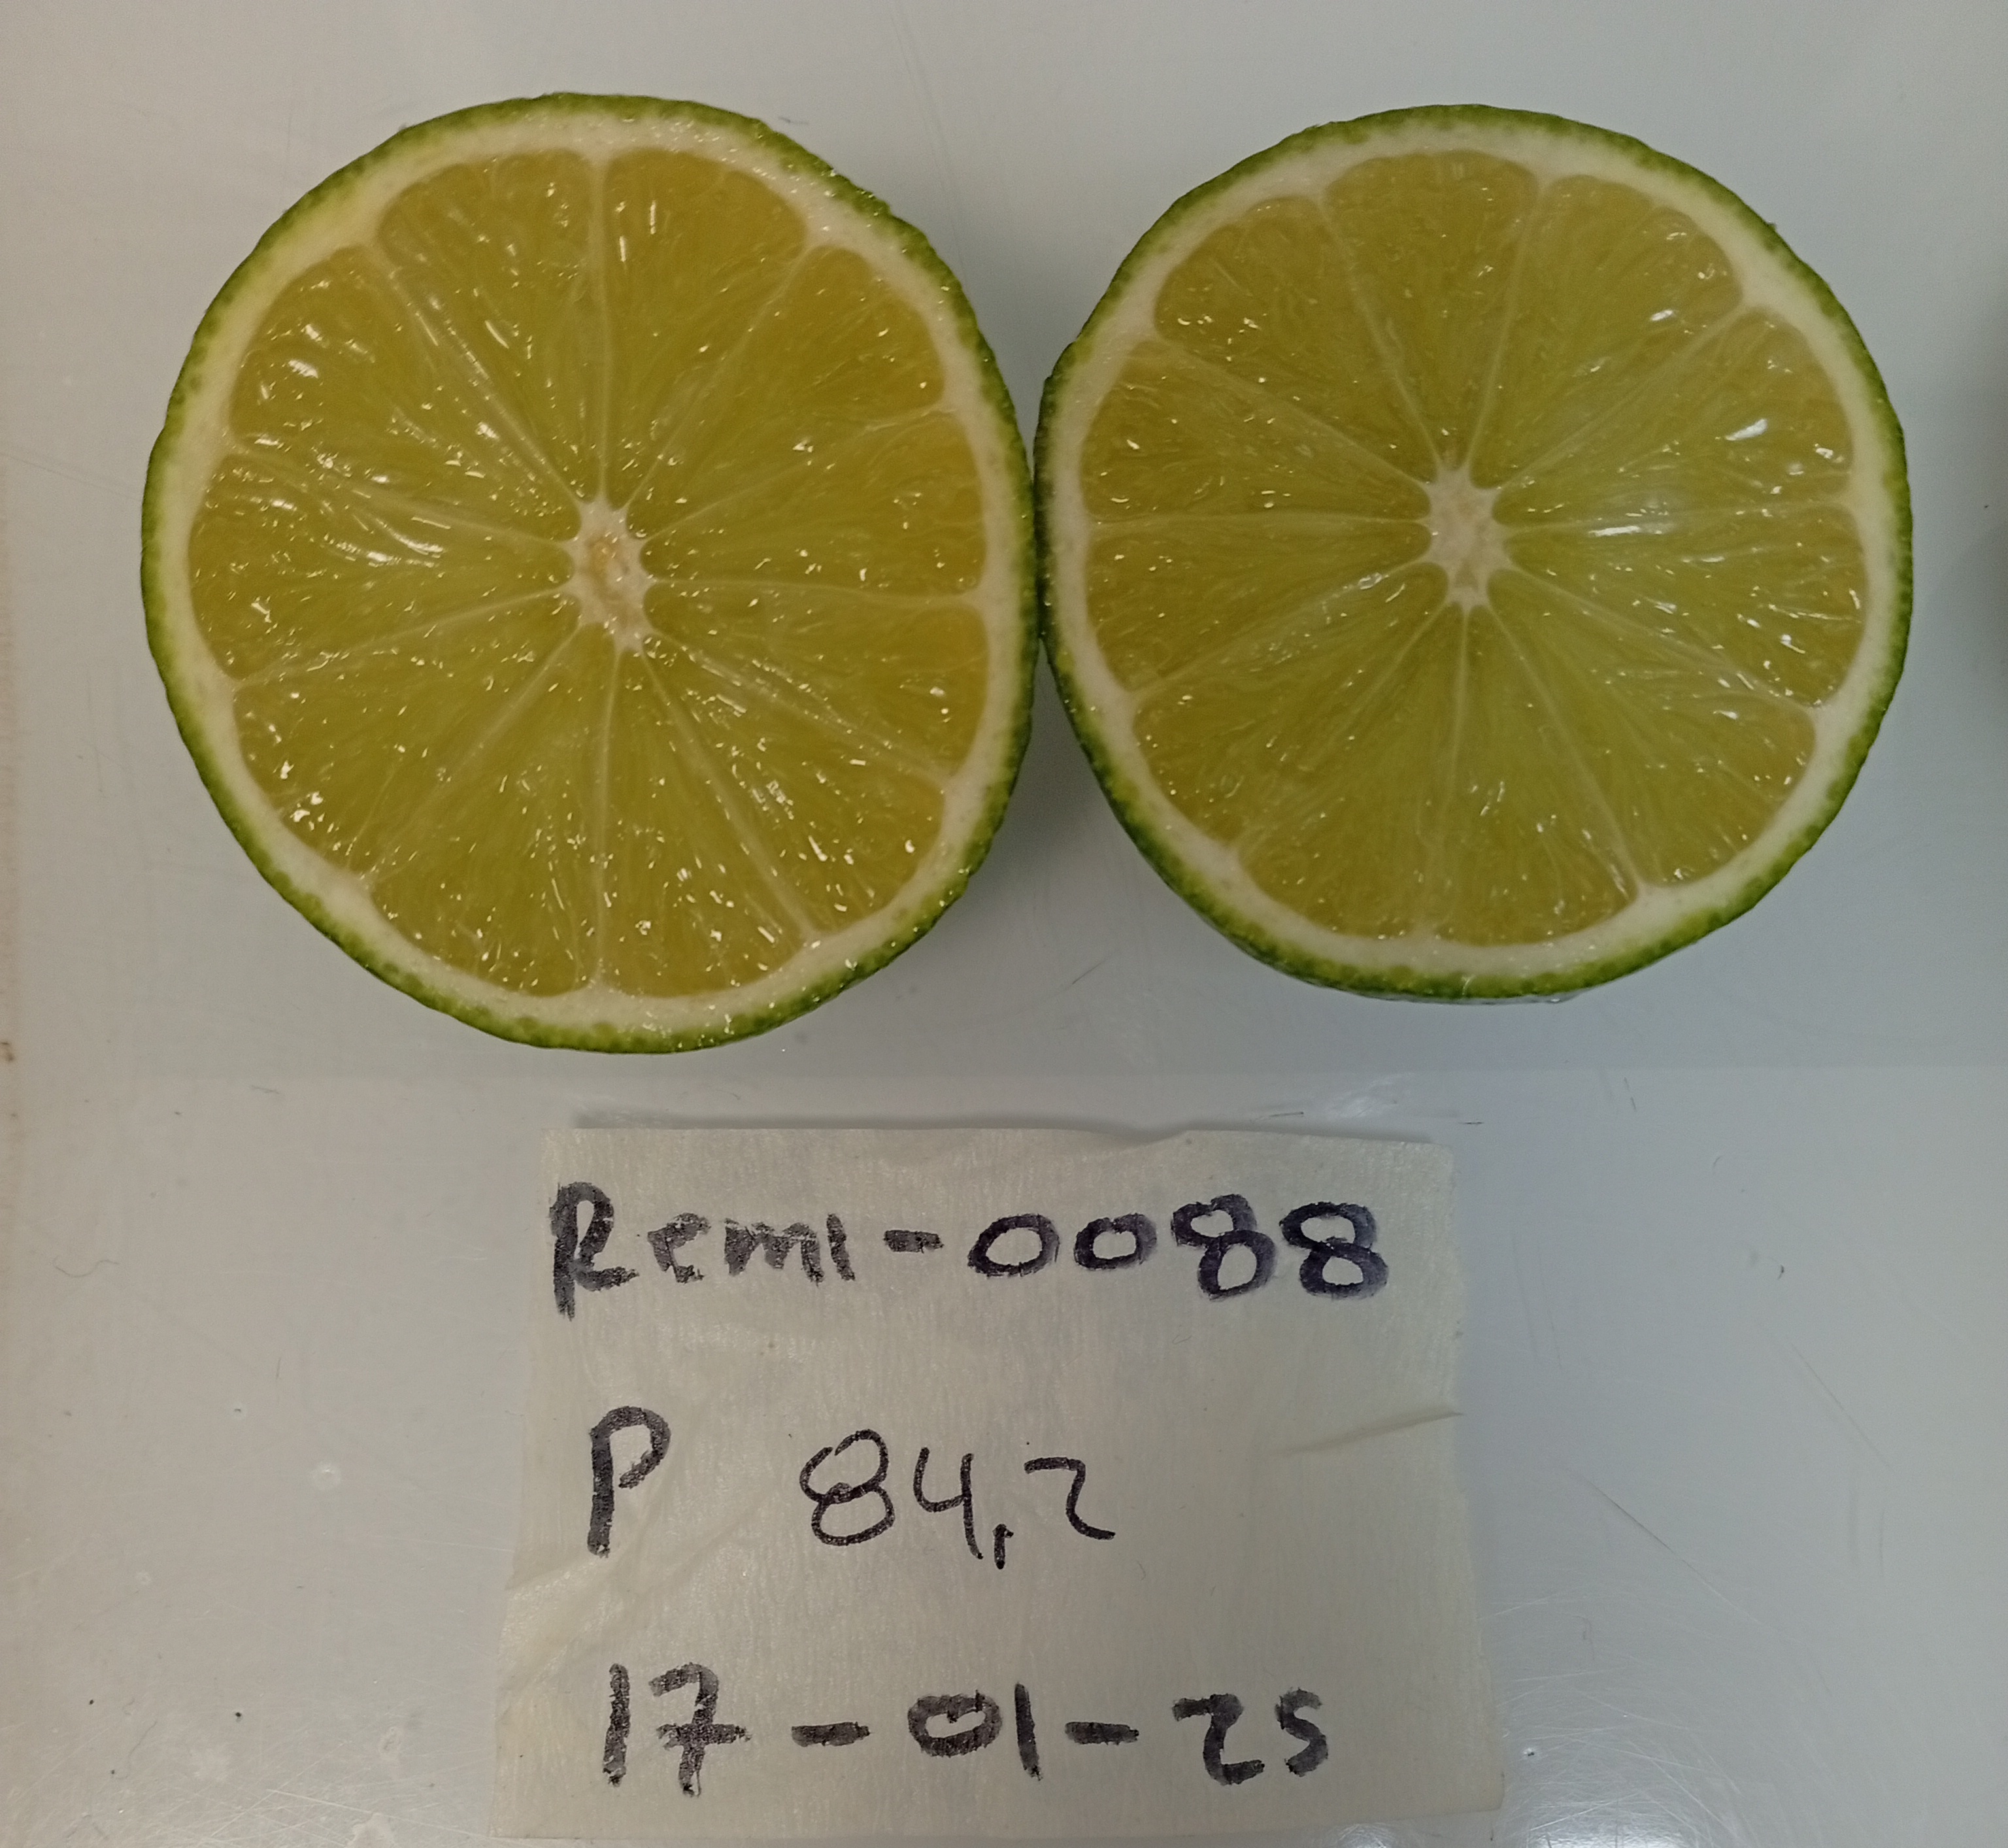 Remi-0088
P 84,2
17-01-25